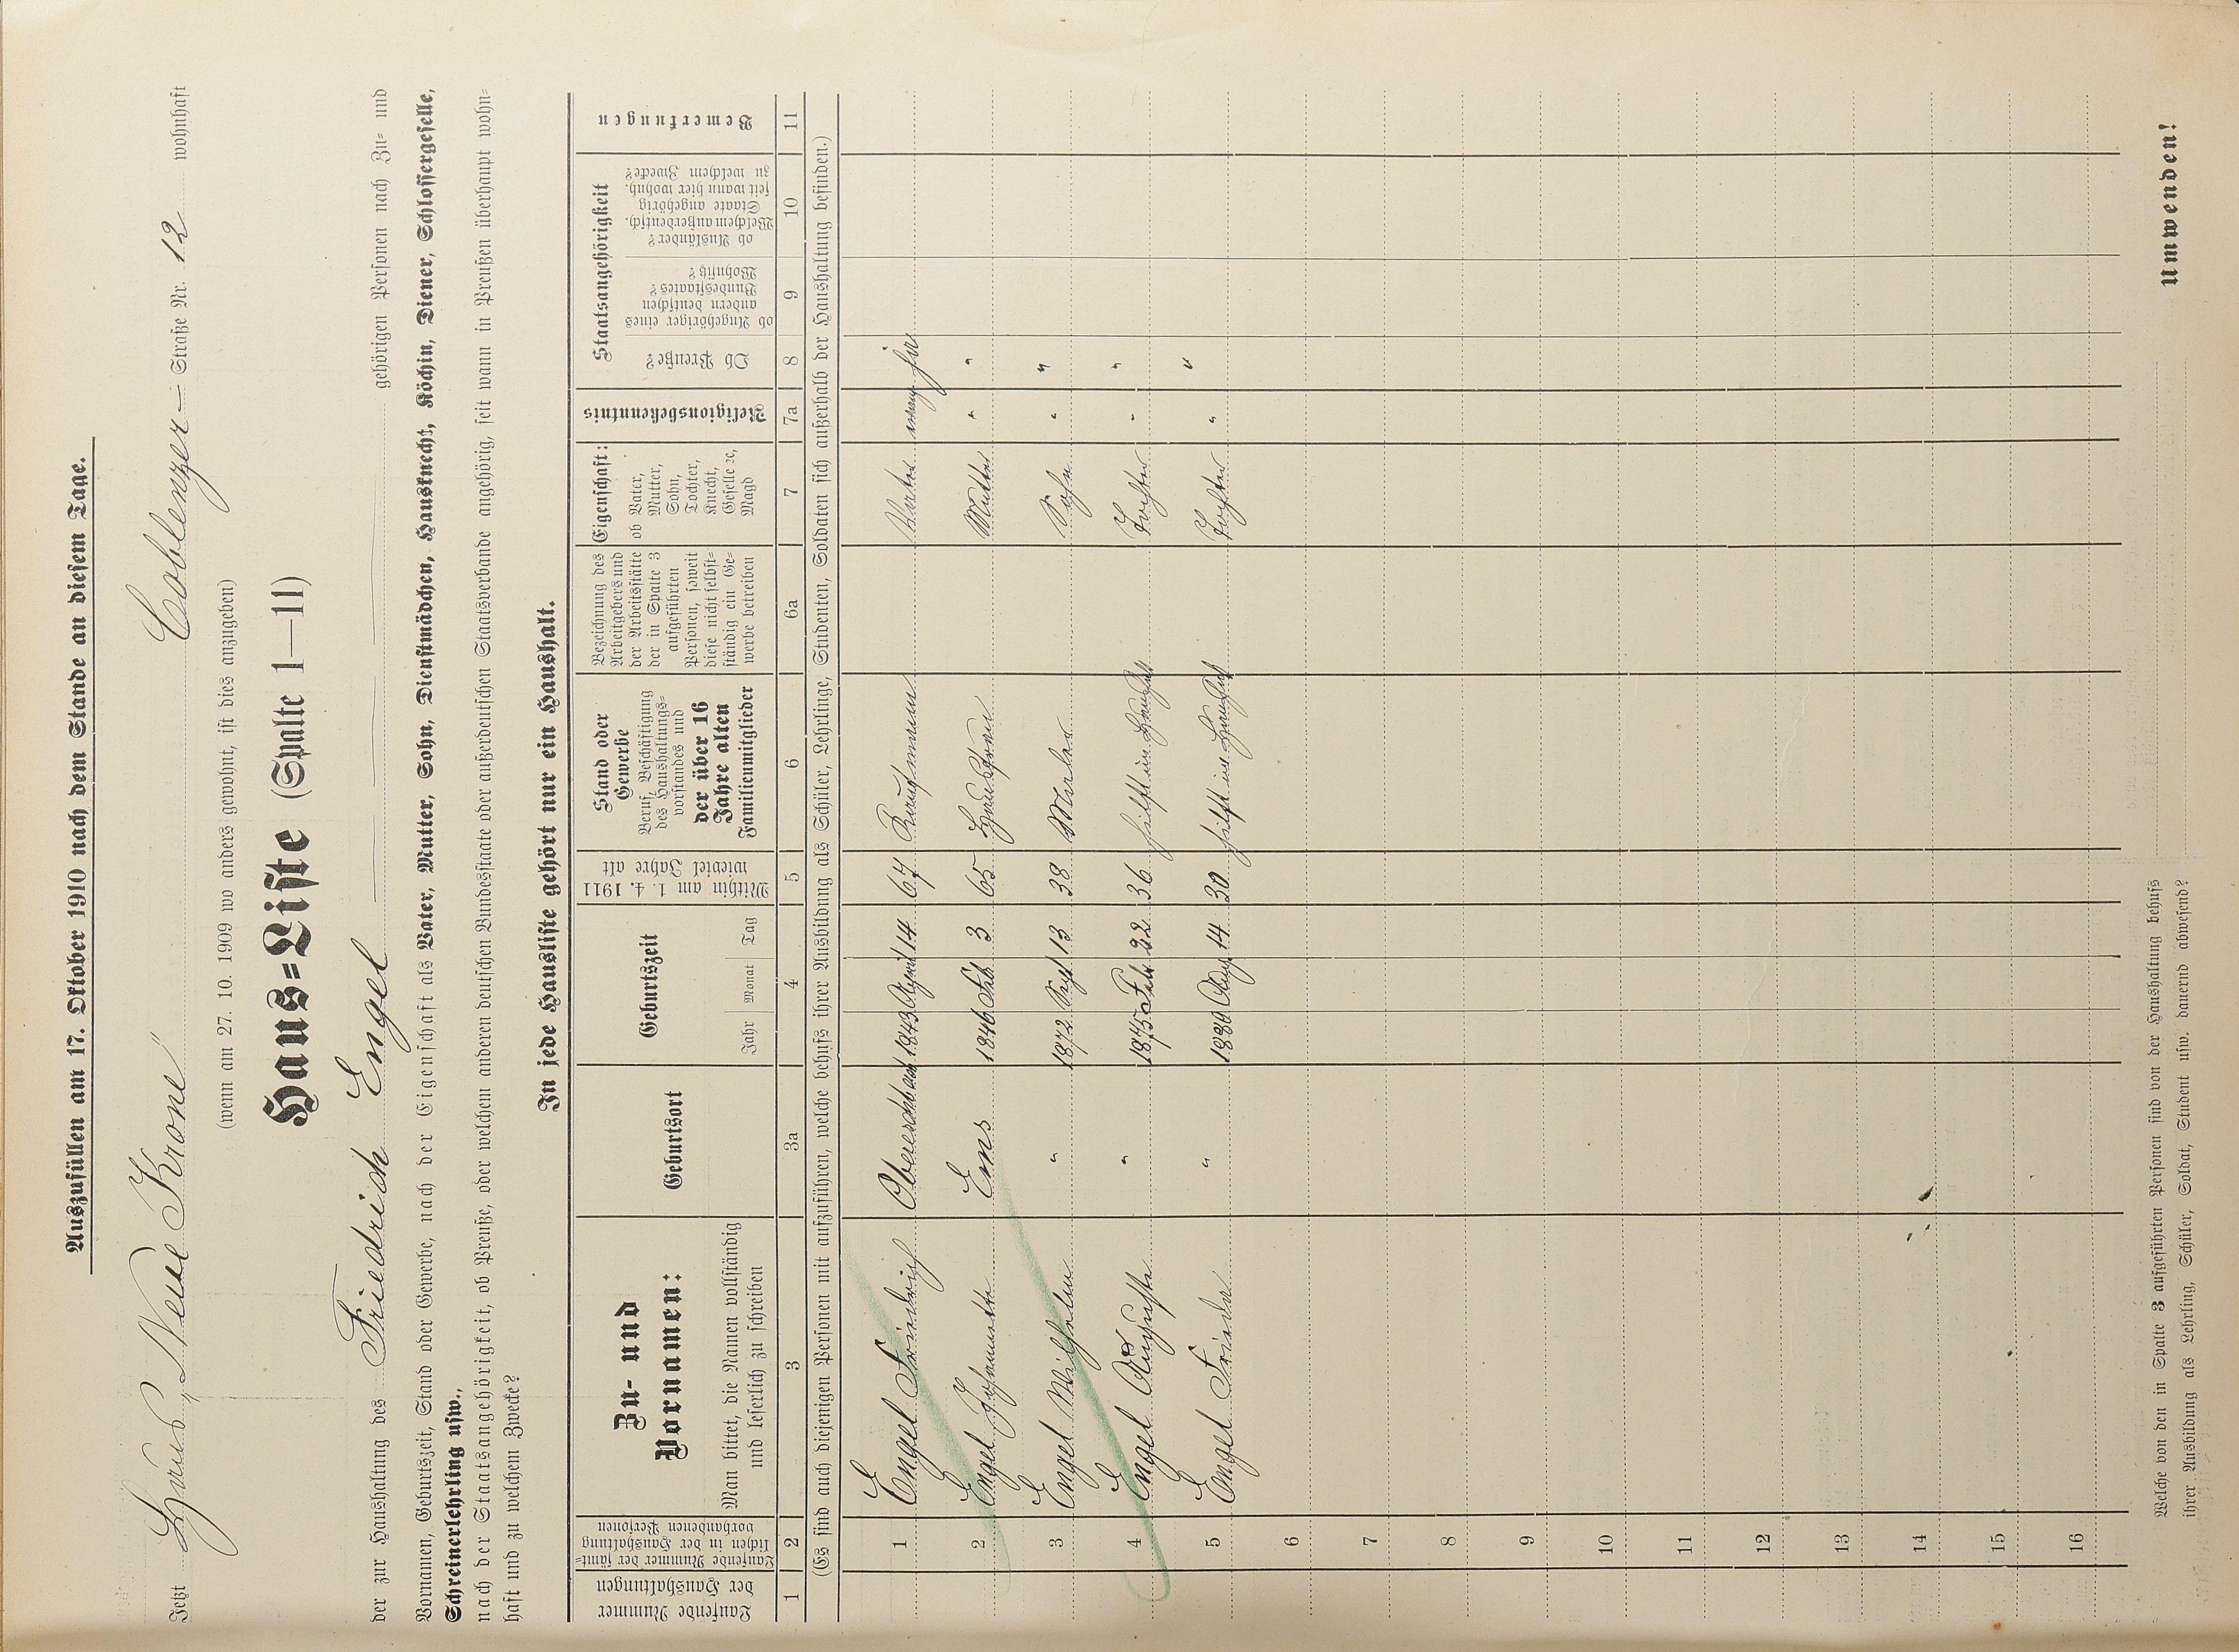 Auszufüllen am 17. Oktober 1910 nach dem Stande an diesem Tage.
Jetzt Haus „Neue Krone" Coblenzer – Straße Nr. 12 wohnhaft
(wenn am 27. 10. 1909 wo anders gewohnt, ist dies anzugeben)
Haus=Liste (Spalte 1—11)
der zur Haushaltung des Friedrich Engel gehörigen Personen nach Zu= und
Vornamen, Geburtszeit, Stand oder Gewerbe, nach der Eigenschaft als Vater, Mutter, Sohn, Dienstmädchen, Hausknecht, Köchin, Diener, Schlossergeselle,
Schreinerlehrling usw.,
nach der Staatsangehörigkeit, ob Preuße, oder welchem anderen deutschen Bundesstaate oder außerdeutschen Staatsverbande angehörig, seit wann in Preußen überhaupt wohn=
haft und zu welchem Zwecke?
In jede Hausliste gehört nur ein Haushalt.
Laufende Nummer
der Haushaltungen
Laufende Nummer der sämt=
lichen in der Haushaltung
vorhandenen Personen
Zu- und
Vornamen:
Man bittet, die Namen vollständig
und leserlich zu schreiben
Geburtsort
Geburtszeit
Jahr Monat Tag
Mithin am 1. 4. 1911
wieviel Jahre alt
Stand oder
Gewerbe
Beruf, Beschäftigung
des Haushaltungs=
vorstandes und
der über 16
Jahre alten
Familienmitglieder
Bezeichnung des
Arbeitgebers und
der Arbeitsstätte
der in Spalte 3
aufgeführten
Personen, soweit
diese nicht selbst=
ständig ein Ge=
werbe betreiben
Eigenschaft:
ob Vater,
Mutter,
Sohn,
Tochter,
Knecht,
Geselle ꝛc,
Magd
Religionsbekenntnis
Staatsangehörigkeit
Ob Preuße?
ob Angehöriger eines
andern deutschen
Bundesstaates?
Wohnsitz?
ob Ausländer?
Welchem außerdeutsch.
Staate angehörig
seit wann hier wohnh.
zu welchem Zwecke?
Bemerkungen
1 2 3 3a 4 5 6 6a 7 7a 8 9 10 11
(Es sind auch diejenigen Personen mit aufzuführen, welche behufs ihrer Ausbildung als Schüler, Lehrlinge, Studenten, Soldaten sich außerhalb der Haushaltung befinden.)
1 Engel Friedrich 1843 April 14 67 Kaufmann Vater evang
2 Engel Johannette Ems 1846 Feb. 3 65 Hausfrau Mutter " "
3 Engel Wilhelm " 1872 Sept 13 38 Maler Sohn " "
4 Engel Auguste " 1875 Feb. 22 36 hilft im Haushalt Tochter " "
5 Engel Frieda " 1880 Aug. 14 30 hilft im Haushalt Tochter " "
6
7
8
9
10
11
12
13
14
15
16
Welche von den in Spalte 3 aufgeführten Personen sind von der Haushaltung behufs
ihrer Ausbildung als Lehrling, Schüler, Soldat, Student usw. dauernd abwesend?
Umwenden!